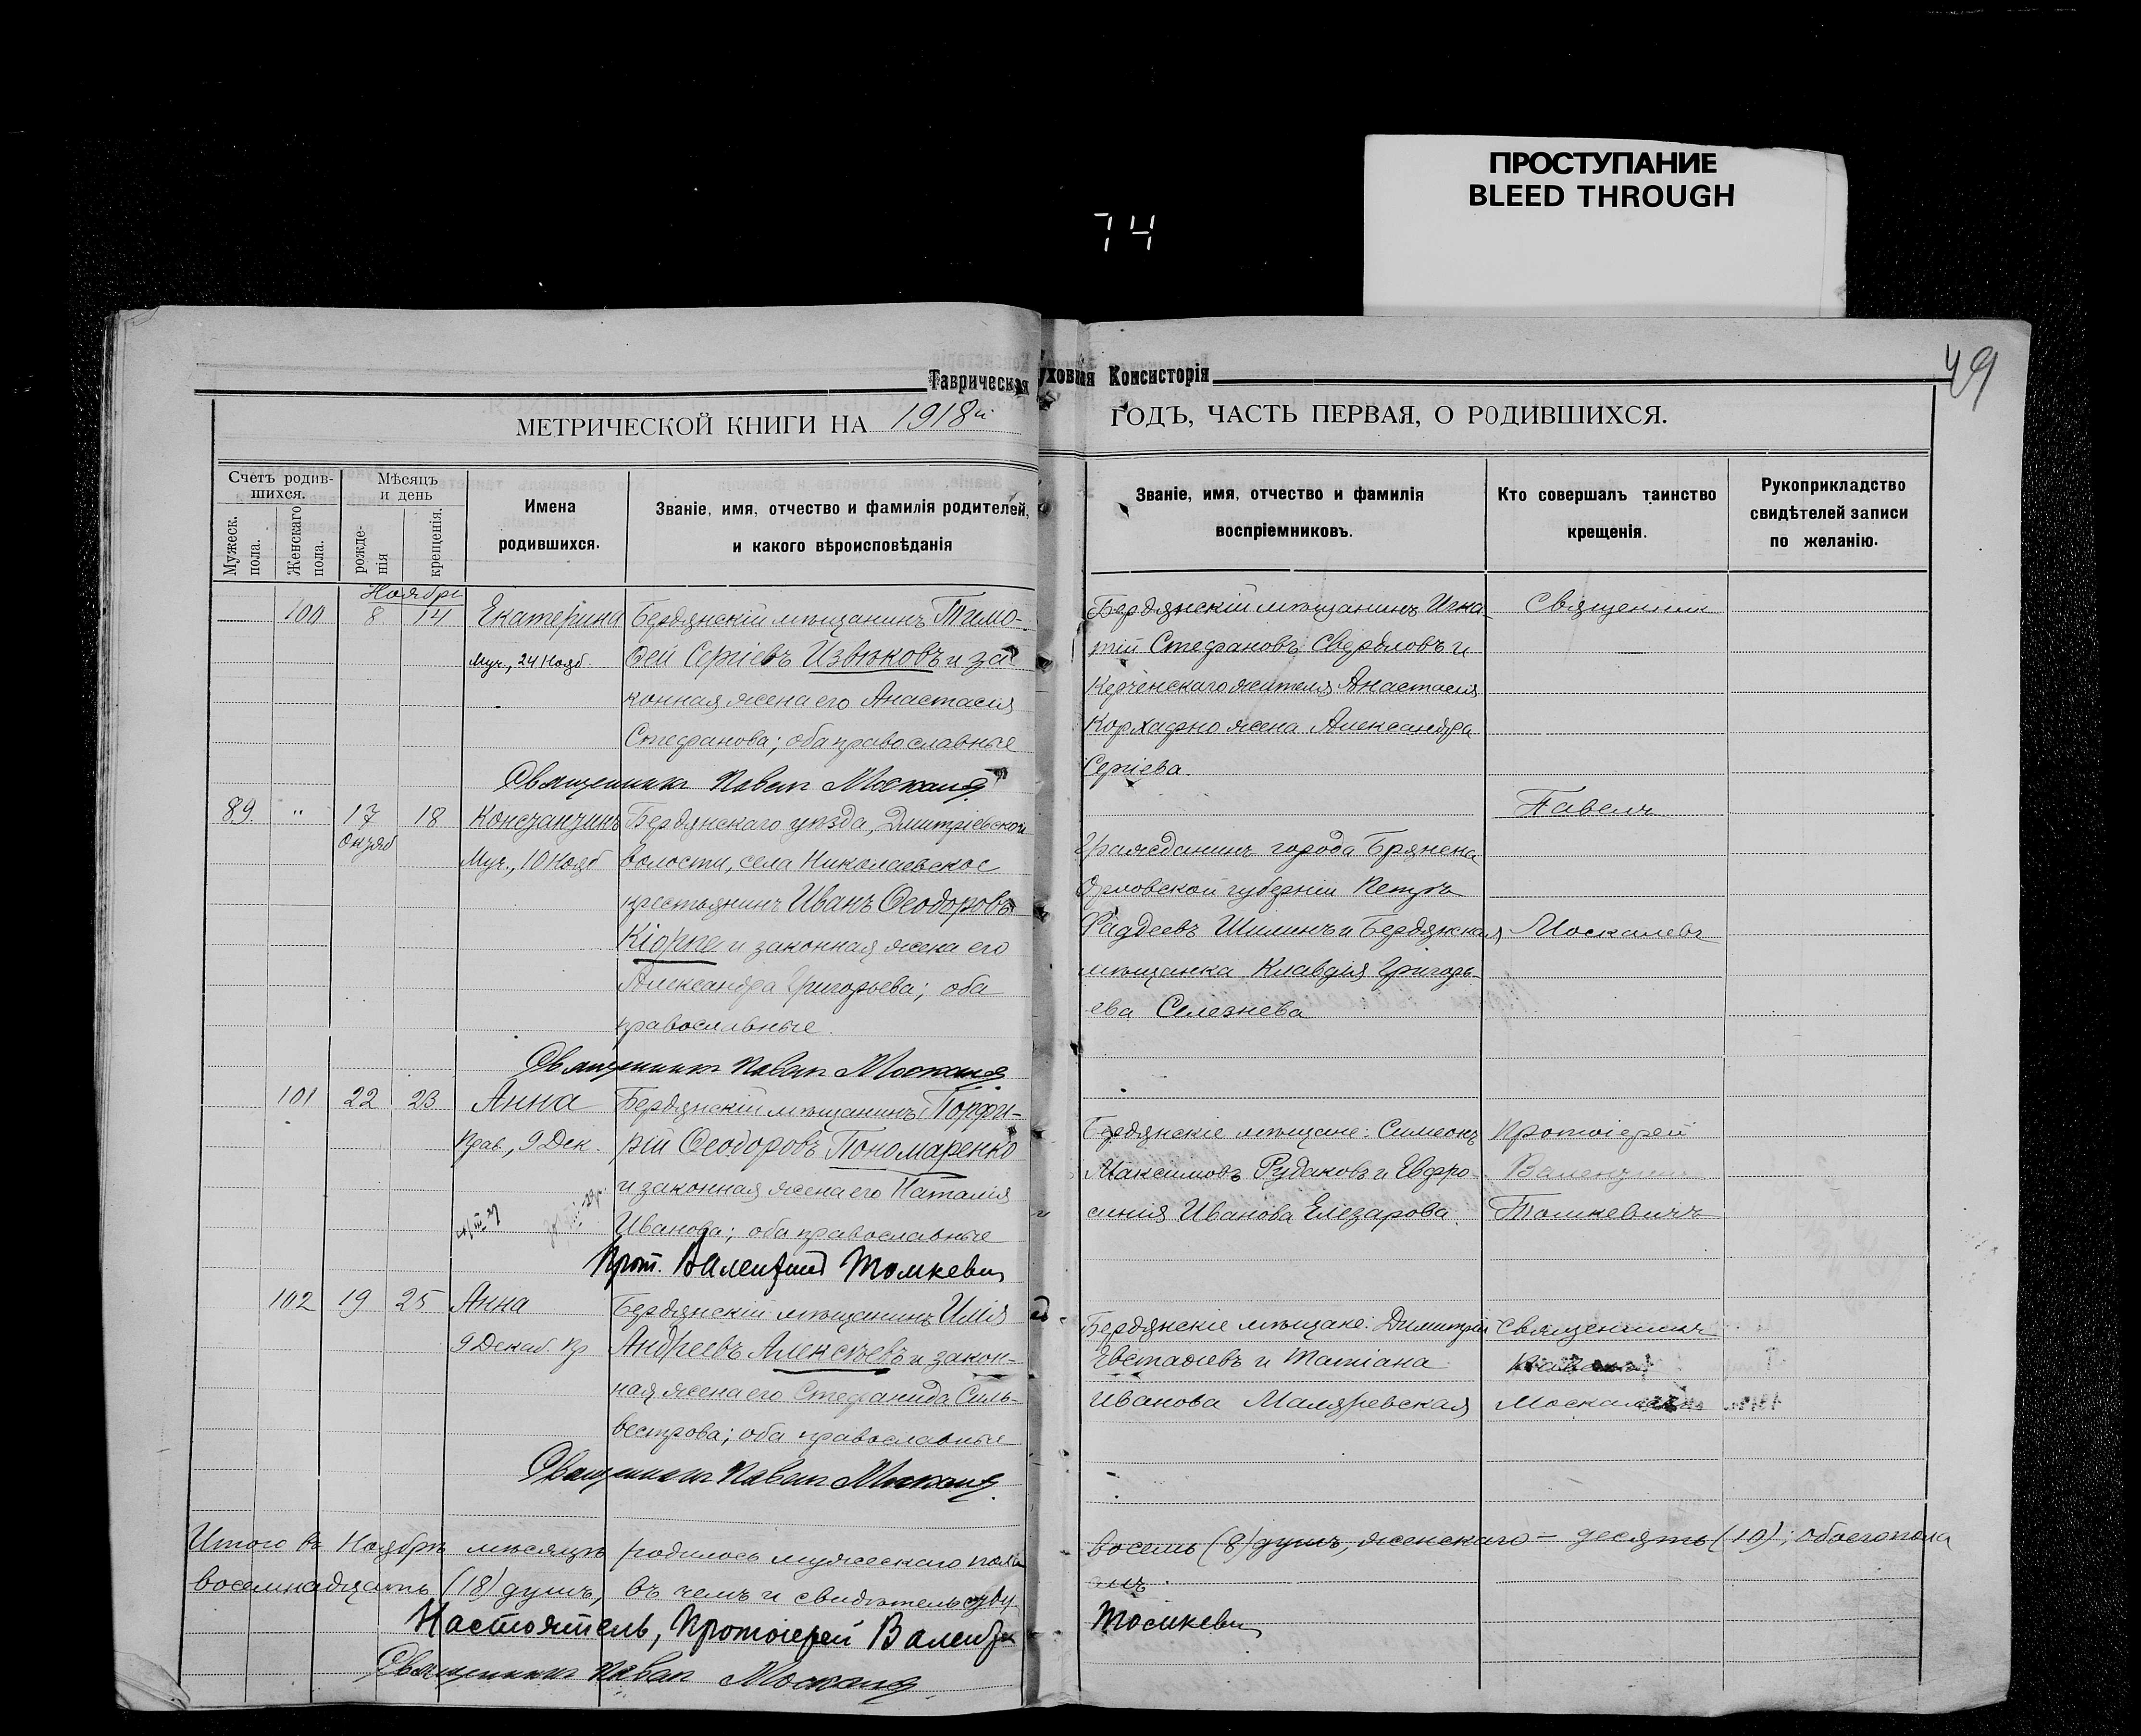 ПРОСТУПАНИЕ
BLEED THROUGH
74
49
Таврическая
уховная Консисторія
МЕТРИЧЕСКОЙ КНИГИ НА 1918й
ГОДЪ, ЧАСТЬ ПЕРВАЯ, О РОДИВШИХСЯ.
Счетъ родив-
шихся.
Мужеск.
пола.
Женскаго
пола.
Мѣсяцъ
и день
рожде-
нія
крещенія.
Имена
родившихся.
Званіе, имя, отчество и фамилія родителей,
и какого вѣроисповѣданія
Званіе, имя, отчество и фамилія
воспріемниковъ.
Кто совершалъ таинство
крещенія.
Рукоприкладство
свидѣтелей записи
по желанію.
Ноябрь
100 8 14 Екатерина
Муч., 24 Нояб.
Бердянскій мѣщанинъ Тимо-
ѳей Сергіевъ Извѣковъ и за
конная жена его Анастасія
Стефанова; оба православные
Священникъ Павелъ
Бердянскій мѣщанинъ Игна
тій Стефановъ Свердловъ и
Керченскаго жителя Анастасія
жена Александра
Сергіева.
Священник
89. " 17 18 Константинъ
Октяб
Муч., 10 Нояб
Бердянскаго уѣзда, Дмитріевской
волости, села Николаевское
крестьянинъ Иванъ Ѳеодоровъ
Кіорпе и законная жена его
Александра Григорьева; оба
православные.
Священникъ Павелъ
Гражданинъ города Брянска
Орловской губерніи Петръ
Фаддеевъ Шилинъ и Бердянская
мѣщанка Клавдія Григорь-
ева Селезнева
Павелъ
Москалевъ
101 22 23 Анна
Прав., 9 Дек.
Бердянскій мѣщанинъ Порфи-
рій Ѳеодоровъ Пономаренко
и законная жена его Наталія
Иванова; оба православные
Прот. Валентинъ Томкевич
Бердянскіе мѣщане: Симеонъ
Максимовъ Рудаковъ и Евфро-
синія Иванова Елезарова.
Протоіерей
Валентинъ
Томкевичъ
102 19 25 Анна
9 Декаб. Пр
Бердянскій мѣщанинъ Илія
Андреевъ Алексѣевъ и закон-
ная жена его Стефанида Силь-
вестрова; оба православные
Священникъ Павелъ
Бердянскіе мѣщане: Димитрій
Евстадіевъ и Татіана
Иванова Маляревская
Священникъ
Итого въ Ноябрѣ мѣсяцѣ родилось мужескаго пола
восемь (8) душъ, женскаго – десять (10); обоего пола
восемнадцать (18) душъ, въ чемъ и свидѣтельству
емъ
Настоятель, Протоіерей Валентин
Томкевич
Священникъ Павелъ